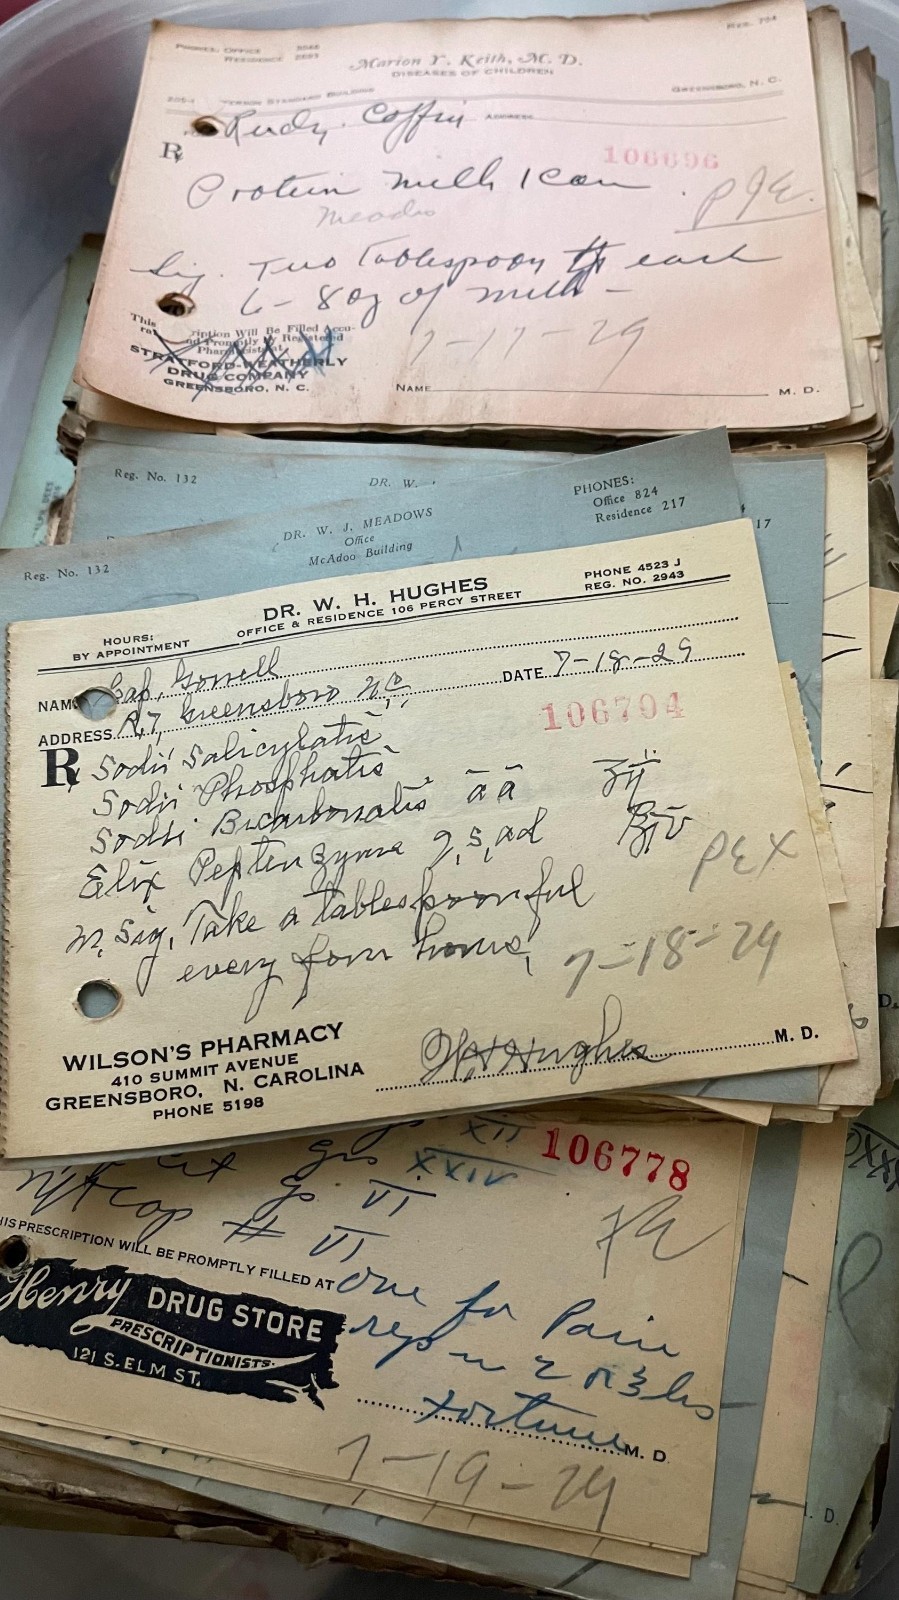 PHONES: OFFICE
RESIDENCE
Marion Y. Keith, M. D.
DISEASES OF CHILDREN
GREENSBORO, N. C.
STANDARD BUILDING
Rudy Coffin ADDRESS
℞
106696
Protein milk 1 can
Meads
Sig. Two Tablespoon to each
6 - 8 oz of milk -
This
ription Will Be Filled Accu-
ra nd Promptly by Registered
Pharmacist at
STRATFORD-WEATHERLY
DRUG COMPANY
GREENSBORO, N. C.
7-17-29
NAME M. D.
Reg. No. 132
DR. W.
PHONES:
Office 824
Residence 217
17
Reg. No. 132
DR. W. J. MEADOWS
Office
McAdoo Building
HOURS:
BY APPOINTMENT
DR. W. H. HUGHES
OFFICE & RESIDENCE 106 PERCY STREET
PHONE 4523 J
REG. NO. 2943
NAME Gorrell DATE 7-18-29
ADDRESS R7, Greensboro N.C.
106704
℞ Sodii Salicylatis
Sodii Phosphatis
Sodii Bicarbonatis āā ʒii
Elix Peptenzyme q,s,ad ℥iv
PEX
M. Sig. Take a tablespoonful
every four hours,
7-18-29
WILSON'S PHARMACY
410 SUMMIT AVENUE
GREENSBORO, N. CAROLINA
PHONE 5198
W H Hughes M. D.
XII
106778
grs XXIV
VI
cap # VI
THIS PRESCRIPTION WILL BE PROMPTLY FILLED AT
Henry DRUG STORE
PRESCRIPTIONISTS.
121 S. ELM ST.
One for Pain
rep in 2 or 3 hrs
Fortune M. D
7-19-29